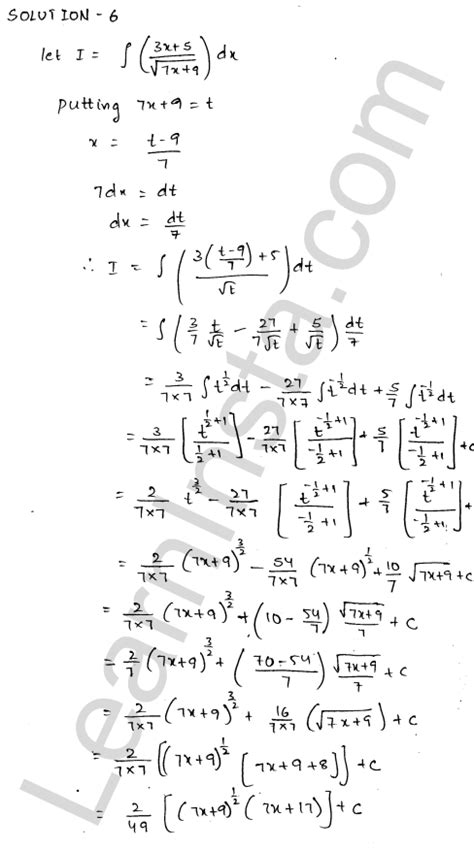 SOLUTION - 6
let I = ∫ ( (3x+5) / √(7x+9) ) dx
putting 7x+9 = t
x = (t-9) / 7
7dx = dt
dx = dt/7
∴ I = ∫ ( (3((t-9)/7) + 5) / √t ) dt
= ∫ ( 3/7 t/√t - 27/(7√t) + 5/√t ) dt/7
= 3/(7×7) ∫ t^(1/2) dt - 27/(7×7) ∫ t^(-1/2) dt + 5/7 ∫ t^(-1/2) dt
= 3/(7×7) [ t^(1/2+1) / (1/2+1) ] - 27/(7×7) [ t^(-1/2+1) / (-1/2+1) ] + 5/7 [ t^(-1/2+1) / (-1/2+1) ] + c
= 2/(7×7) t^(3/2) - 27/(7×7) [ t^(-1/2+1) / (-1/2+1) ] + 5/7 [ t^(-1/2+1) / (-1/2+1) ] +
= 2/(7×7) (7x+9)^(3/2) - 54/(7×7) (7x+9)^(1/2) + 10/7 √(7x+9) + c
= 2/(7×7) (7x+9)^(3/2) + (10 - 54/7) √(7x+9)/7 + c
= 2/7 (7x+9)^(3/2) + ( (70-54)/7 ) √(7x+9)/7 + c
= 2/(7×7) (7x+9)^(3/2) + 16/(7×7) (√(7x+9)) + c
= 2/(7×7) [(7x+9)^(1/2) [7x+9+8]] + c
= 2/49 [(7x+9)^(1/2) (7x+17)] + c
LearnInsta.com